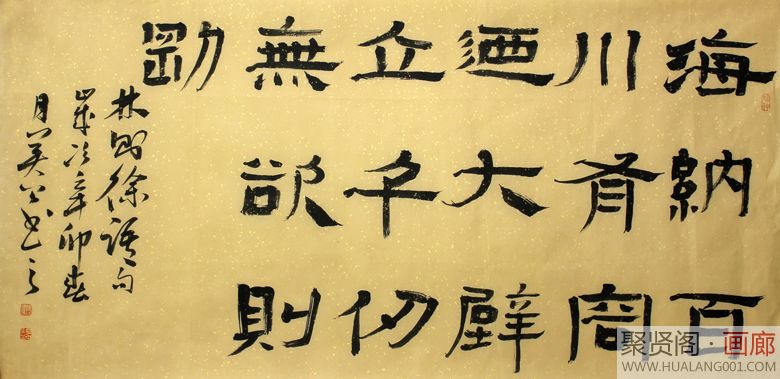 海納百
川有容
迺大壁
立千仞
無欲則
剛
林則徐語句
歲次辛卯春
月书之
聚贤阁·画廊
WWW.HUALANG001.COM